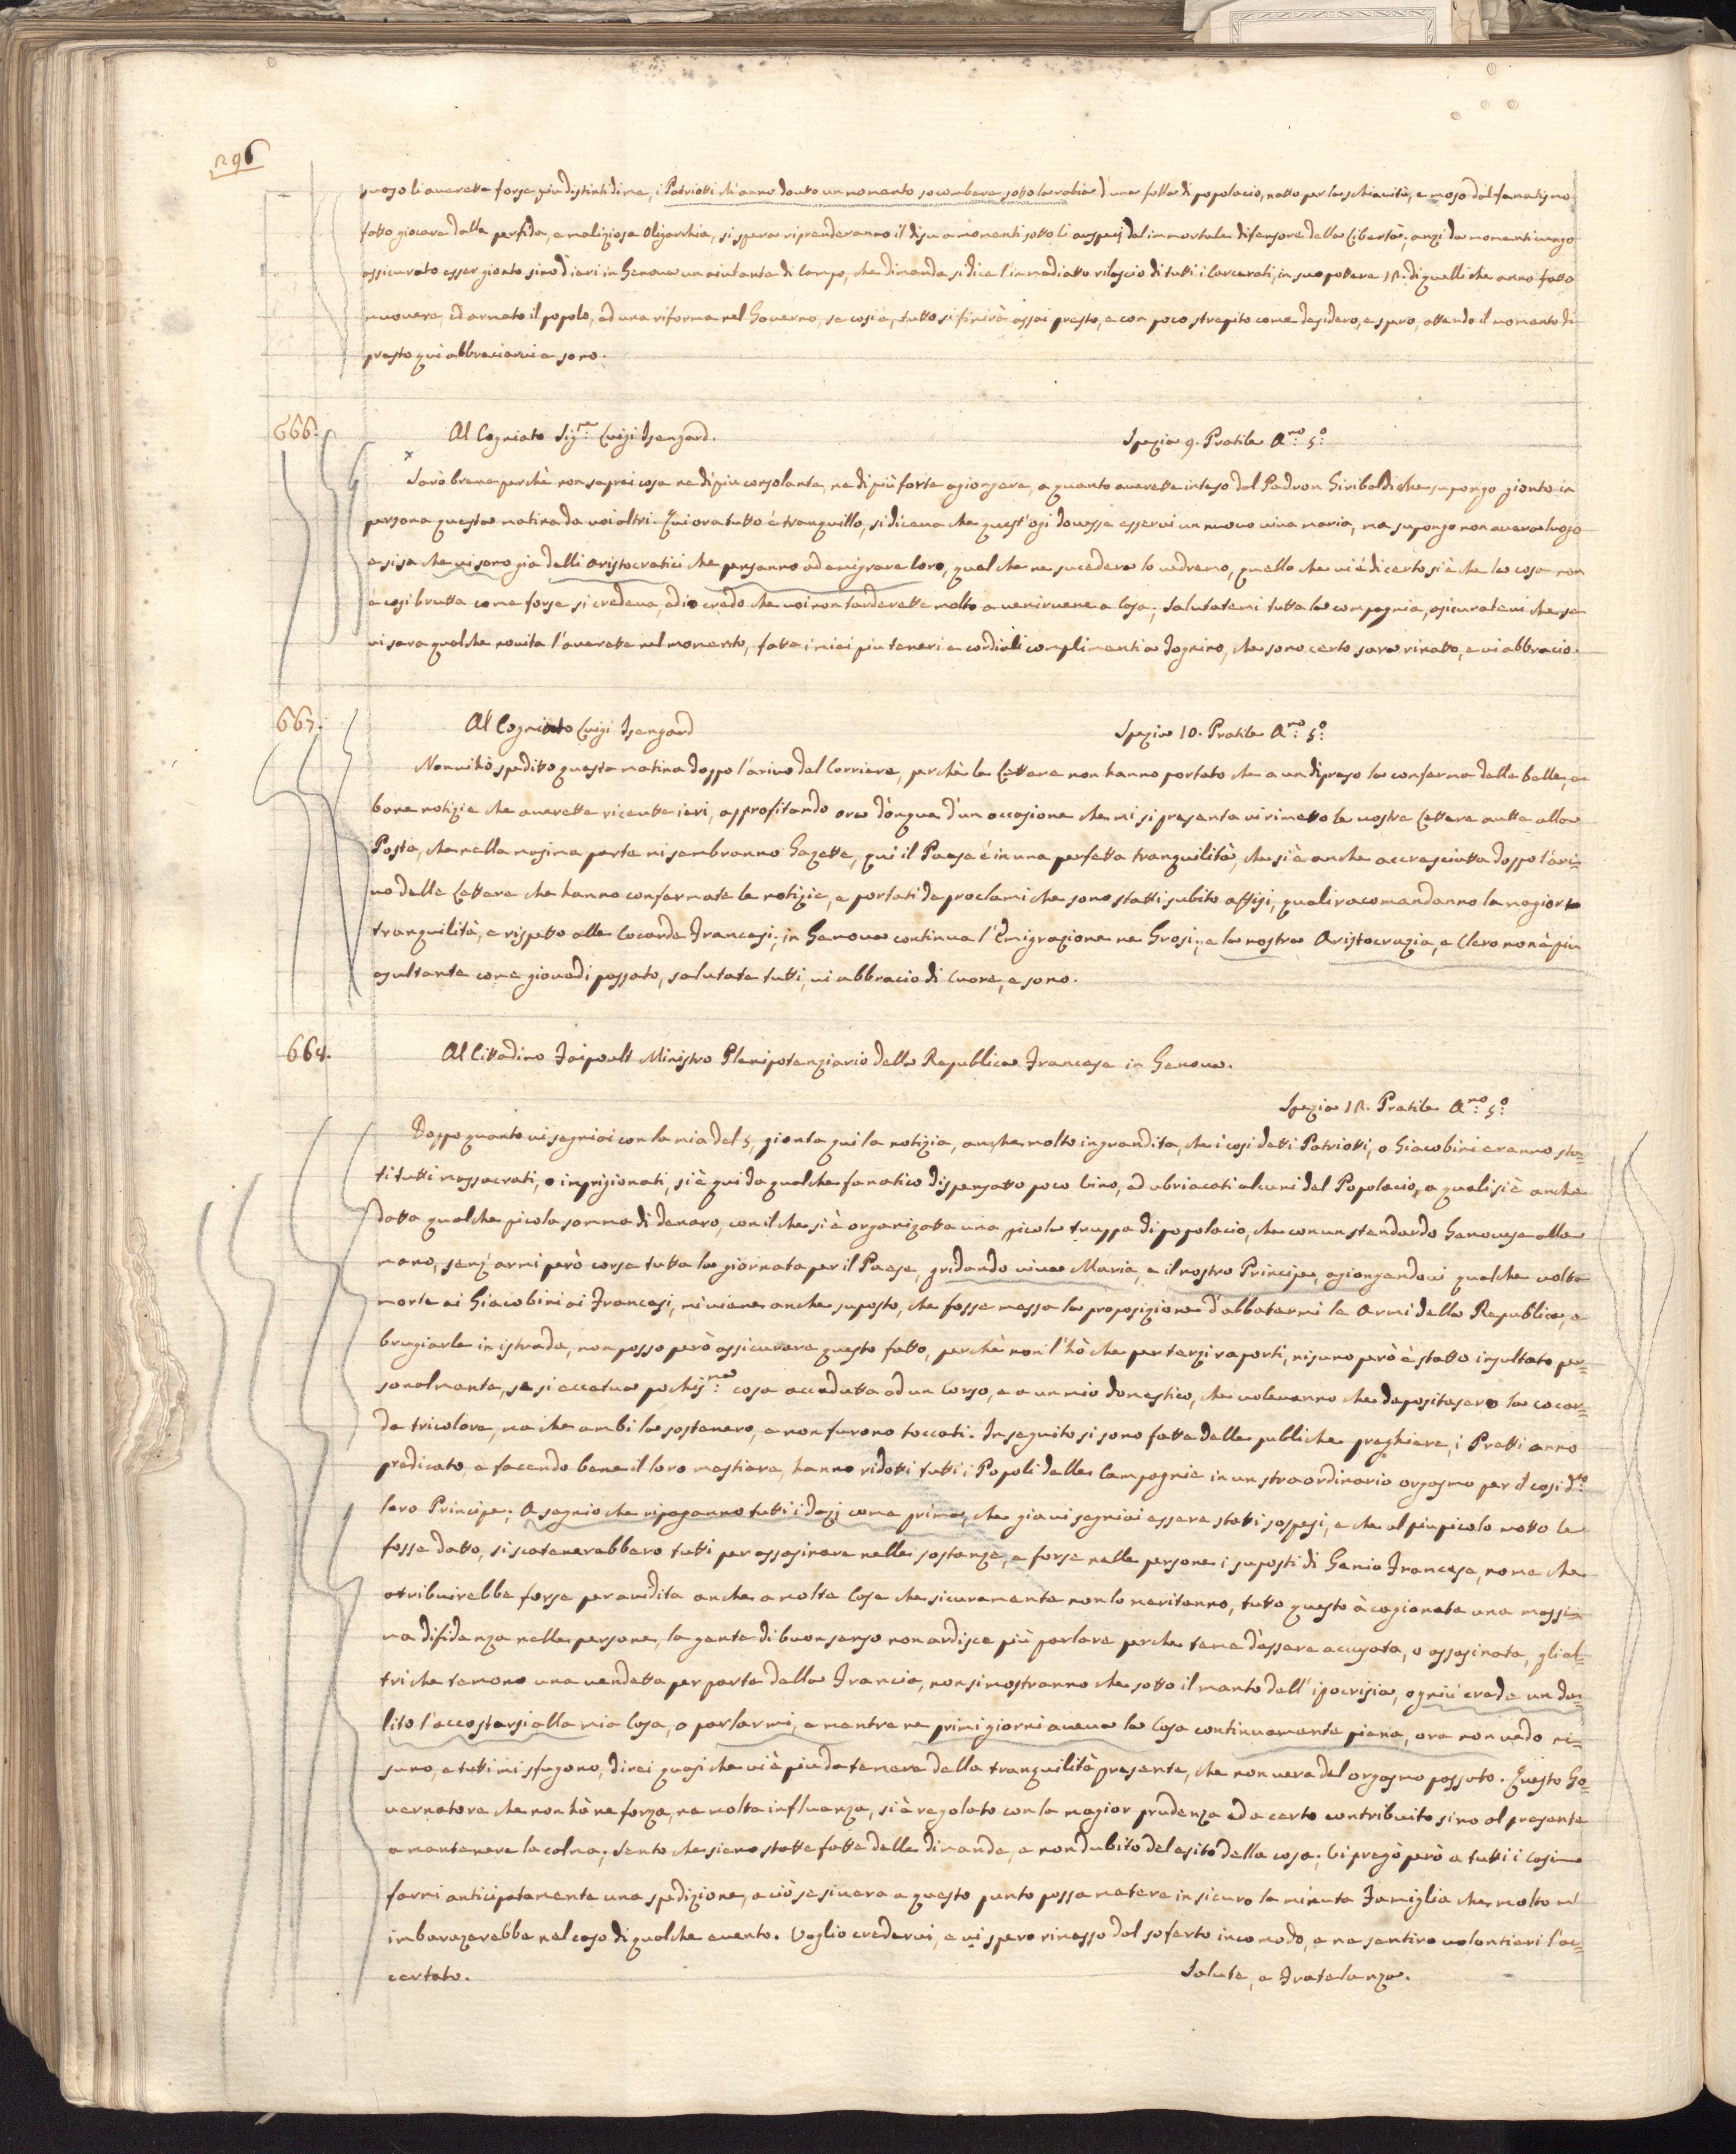 296
luogo li avrette forse più distinti di me, i Patriotti ch'anno douto un momento socombere sotto la rabia d'una folla di popolacio, natto per la schiavitù, e moso dal fanatismo
fatto giocare dalla perfida, e maliziosa Oligarchia, si spera riprenderanno il disu a momenti sotto li auspicj del immortale difensore della Libertà; anzi da momenti vengo
assicurato esser gionto sino d'ieri in Genova un aiutante di Campo, che dimanda si dice l'imediatto rilascio di tutti i Carcerati, in suo pottere 12. di quelli che anno fatto
muovere, ed armato il popolo, ed una riforma nel Governo, se così è, tutto si finirà assai presto, e con poco strepito come desidero, e spero, attendo il momento di
presto qui abbraciarvi e sono.
666. Al Cogniato Sig.re Luigi Isengard. Spezia 9. Pratile A.no 5.o
Sarò breve perchè non saprei cosa ne di più consolante, ne di più forte agiongere, a quanto averette inteso dal Padron Giribaldi che supongo gionto in
persona questa matina da voi altri. Qui ora tutto è tranquillo, si diceva che quest'ogi dovesse esservi un nuovo viva maria, ma supongo non averà luogo
e si sa che vi sono già delli aristocratici che pensanno ad emigrare loro, quel che ne sucederà lo vedremo, quello che vi è di certo si è che la cosa non
è così brutta come forse si credeva, ed io credo che voi non tarderette molto a venirvene a Casa; Salutatemi tutta la compagnia, asicuratevi che se
vi sara qualche novita l'averette nel momento, fatte i miei più teneri e cordiali complimenti a Tognino, che sono certo sarà rinatto, e vi abbracio.
667. Al Cogniato Luigi Isengard Spezia 10. Pratile A.no 5.o
Non vi hò speditto questa matina doppo l'arivo del Corriere, perchè le Lettere non hanno portato che a un dipreso la conferma delle belle, e
bone notizie che averette ricevutte ieri, approfitando ora dongue d'un occasione che mi si presenta vi rimetto le vostre Lettere autte alla
Posta, che nella masima parte mi sembranno Gazette, qui il Paese è in una perfetta tranguilità, che si è anche accresciutta doppo l'ari=
vo delle Lettere che hanno confermate le notizie, e portati de proclami che sono statti subito affisi, quali racomandanno la magior
tranguilità, e rispetto alle Cocarde Francesi; in Genova continua l'Emigrazione ne Grosi; e la nostra Aristocrazia, e Clero non è più
esultante come giovedì passato, salutate tutti, vi abbracio di Cuore, e sono.
668. Al Cittadino Faipoult Ministro Plenipotenziario della Republica Francese in Genova.
Spezia 12. Pratile A.no 5.o
Doppo quanto vi segniai con la mia del 5, gionta qui la notizia, anche molto ingrandita, che i così detti Patriotti, o Giacobini eranno sta=
ti tutti massacrati, o imprigionati, si è qui da qualche fanatico dispensatto poco Vino, ed ubriacati alcuni del Popolacio, a quali si è anche
datta qualche picola somma di denaro, con il che si è organizatta una picola truppa di popolacio, che con un stendardo Genovese alla
mano, senz'armi però corse tutta la giornata per il Paese, gridando viva Maria, e il nostro Principe, agiongendovi qualche volta
morte ai Giacobini ai Francesi, mi viene anche suposto, che fosse messa la proposizione d'abbatermi le Armi della Republica, e
brugiarle in istrada, non posso però assicurare questo fatto, perchè non l'hò che per terzi raporti, nisuno però è statto insultato per=
sonalmente, se si eccetua pochis.ma cosa accadutta ad un Corso, e a un mio domestico, che volevanno che depositasero la cocar=
da tricolore, ma che ambi la sostenero, e non furono toccati. In seguito si sono fatte delle publiche preghiere, i Pretti anno
predicato, e facendo bene il loro mestiere, hanno ridotti tutti i Popoli delle Campagnie in un straordinario orgasmo per il così d.to
loro Principe; A segnio che ripaganno tutti i dazj come prima, che già vi segniai essere statti sospesi, e che al più picolo motto le
fosse datto, si scatenerebbero tutti per assasinare nelle sostanze, e forse nelle persone i suposti di Genio Francese, nome che
atribuirebbe forse per avidita anche a molte Case che sicuramente non lo meritanno, tutto questo à cagionata una massi=
ma difidenza nelle persone, la gente di buon senso non ardisce più parlare perche teme d'essere accusata, o assasinata, gli al=
tri che temono una vendetta per parte della Francia, non si mostranno che sotto il manto dell'ipocrisia, ogniù crede un de=
lito l'accostarsi alla mia Casa, o parlarmi, e mentre ne primi giorni aveva la Casa continuamente piena, ora non vedo ni=
suno, e tutti mi sfugono, direi quasi che vi è più da temere della tranguilità presente, che non vera del orgasmo passato. Questo Go=
vernatore che non hà ne forza, ne molta influenza, si è regolato con la magior prudenza ed a certo contribuito sino al presente
a mantenere la calma; Sento che sieno statte fatte delle dimande, e non dubito del esito della cosa; Vi pregò però a tutti i Casi
farmi anticipatamente una spedizione, a ciò se si vera a questo punto possa metere in sicuro la minuta Famiglia che molto m'
imbarazerebbe nel caso di qualche evento. Voglio credervi, e vi spero rimesso dal soferto incomodo, e ne sentirò volontieri l'ac=
certato. Salute, e Fratelanza.